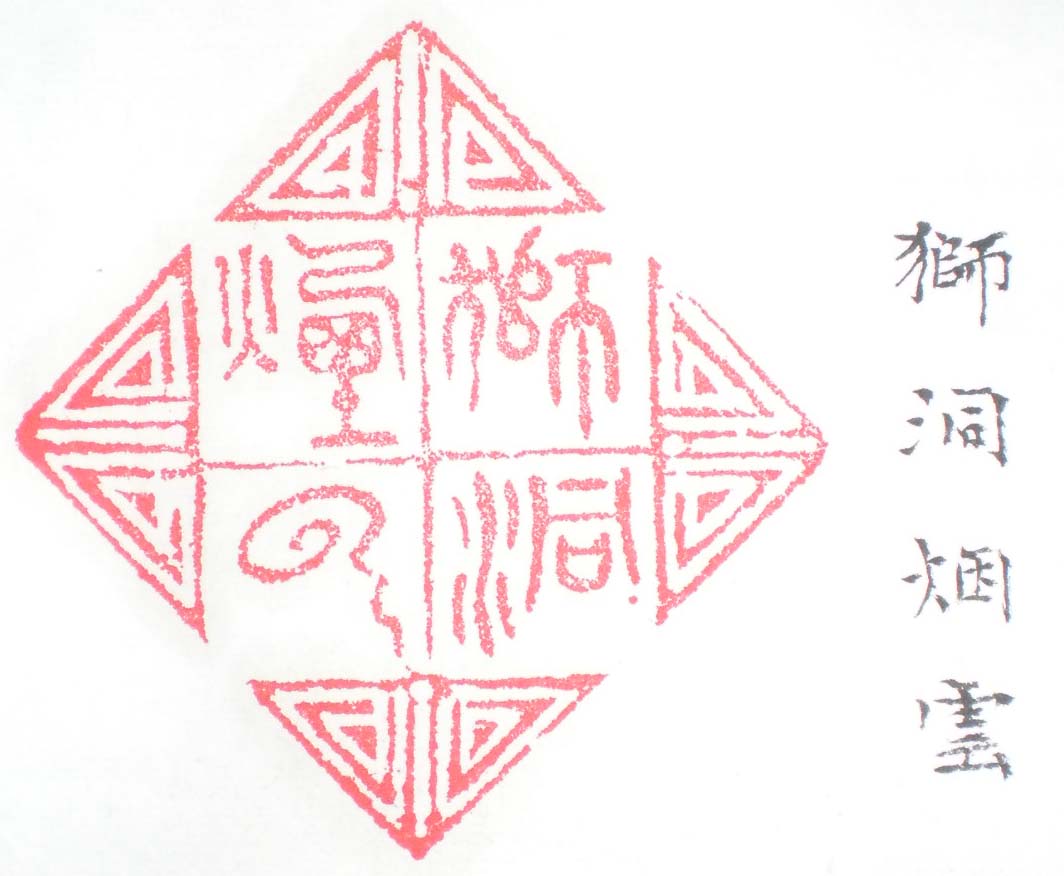 獅洞
烟雲
獅洞烟雲